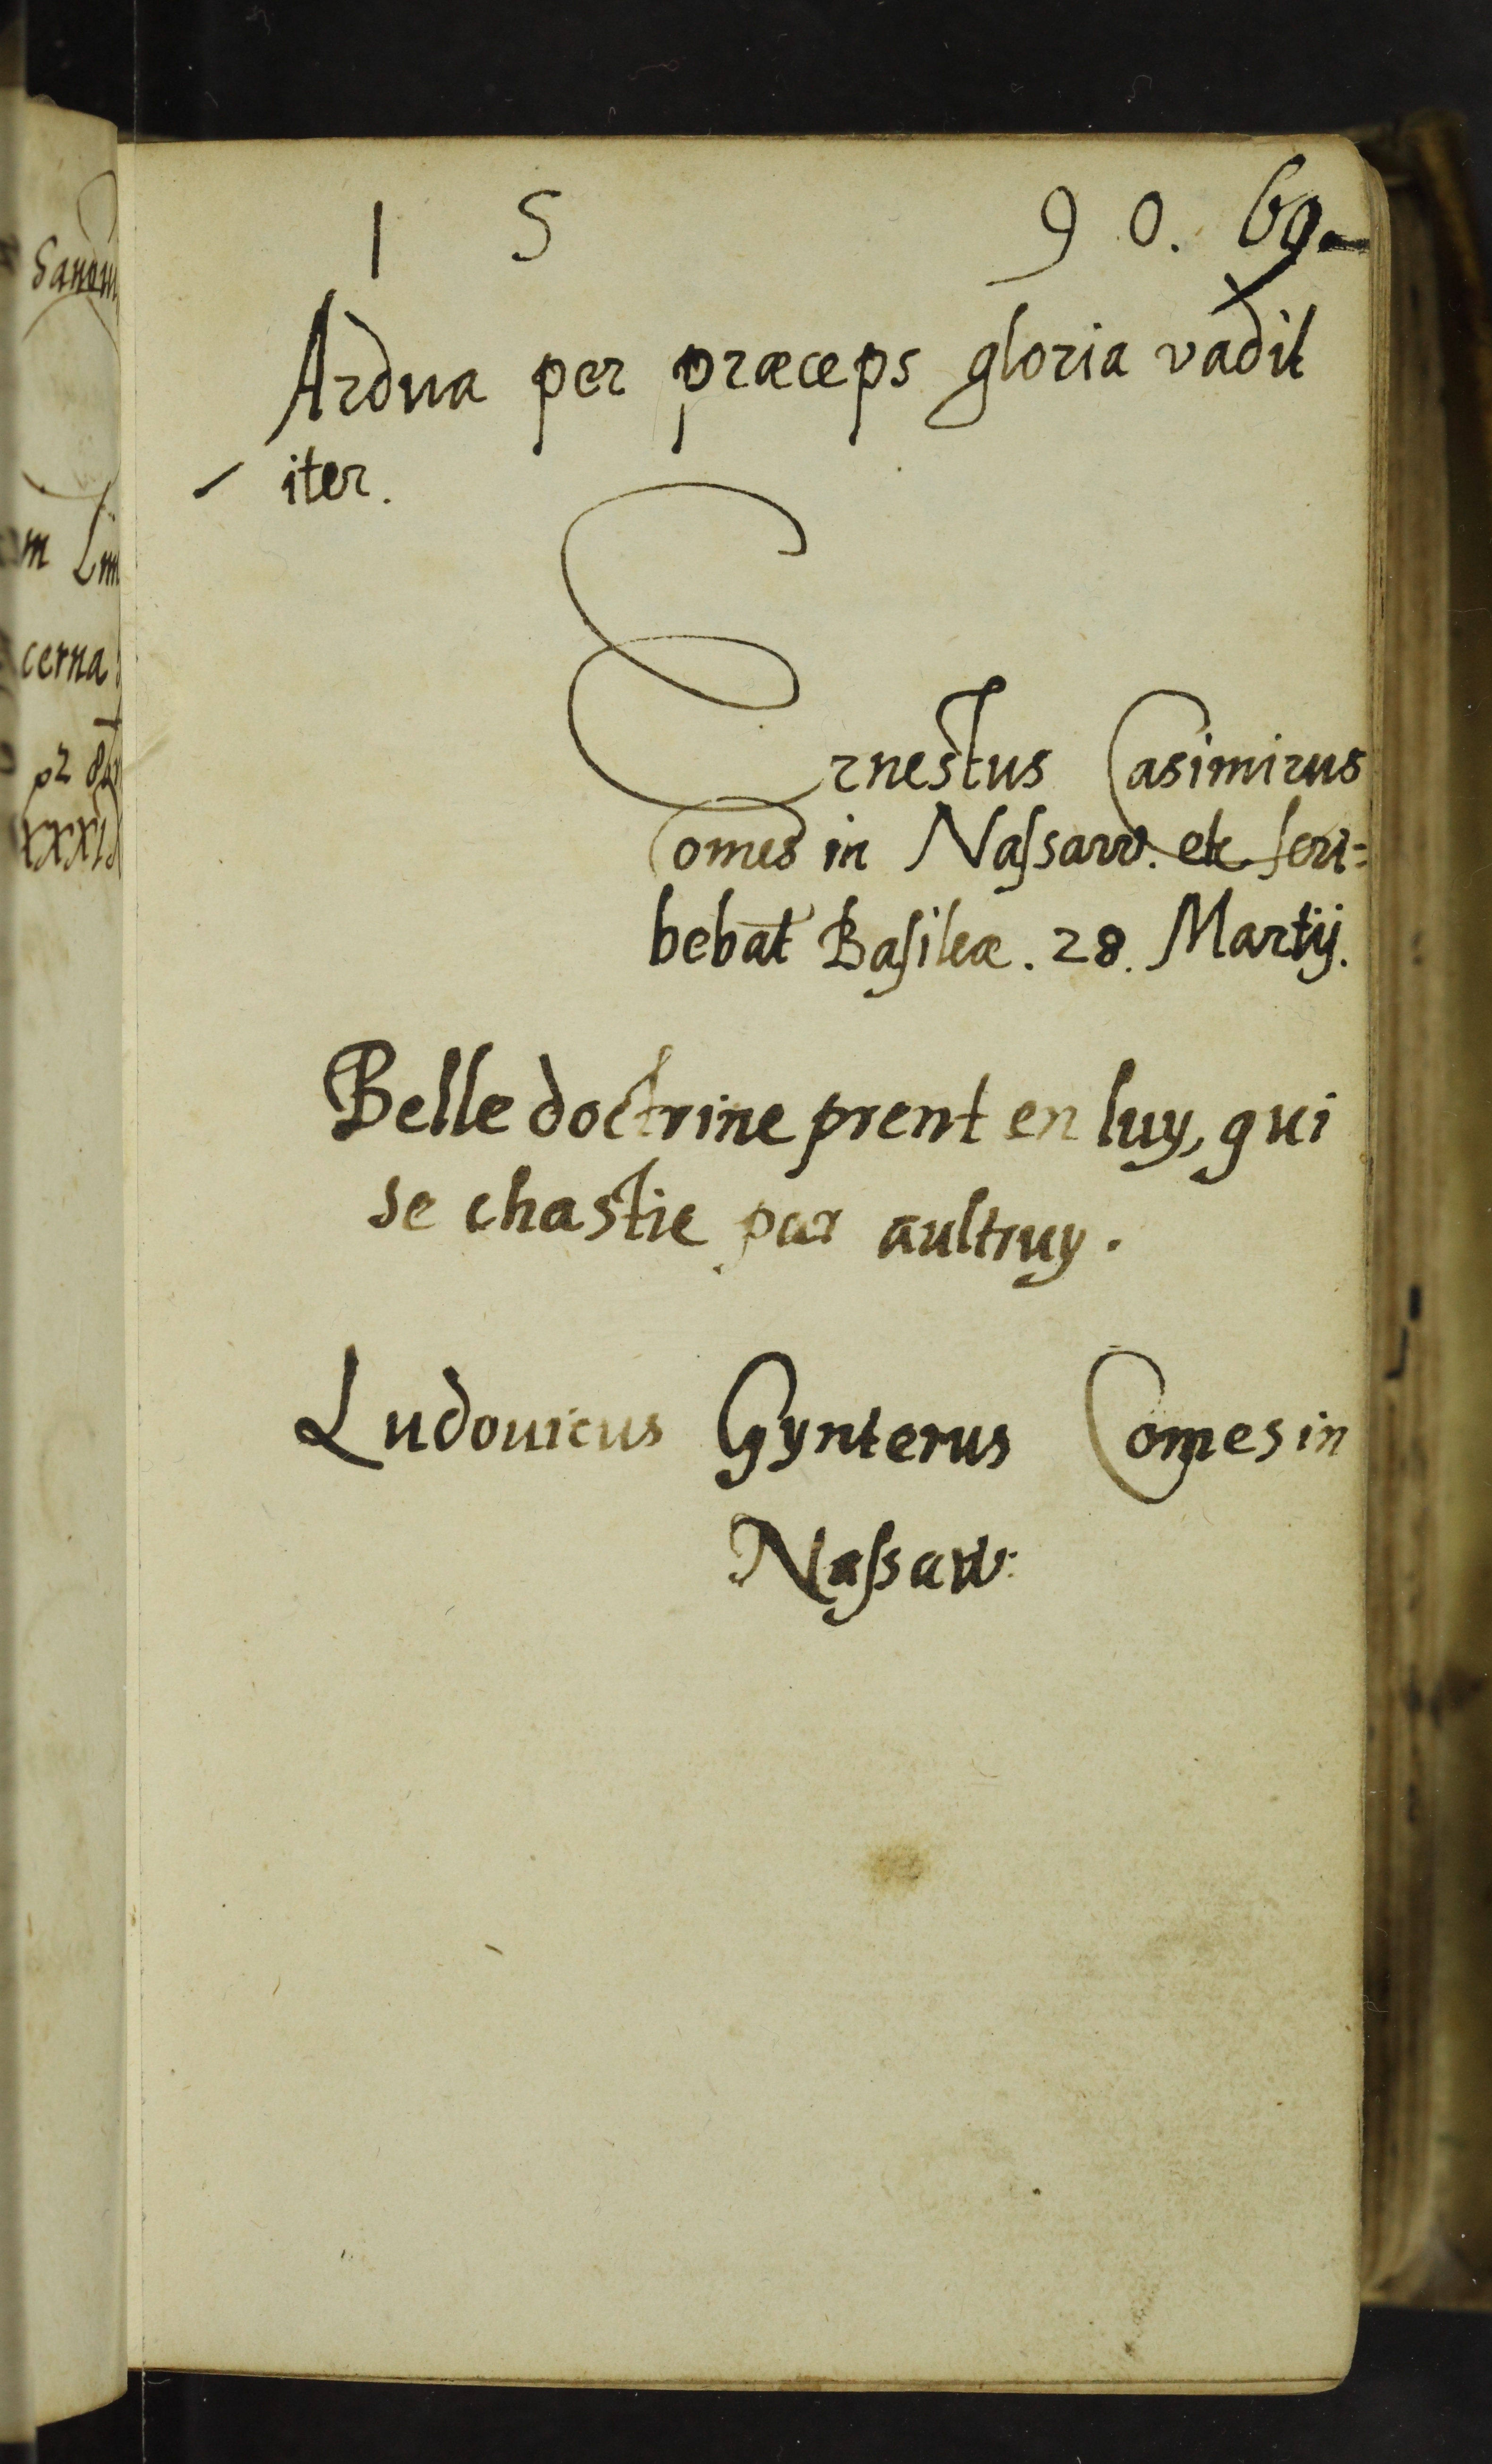 1 5 9 0. 69.
Ardua per præceps gloria vadit
iter.
Ernestus Casimirus
Comes in Naſsaw. etc scri=
bebat Baſileæ. 28. Martij.
Belle doctrine prent en luy, qui
se chastie par aultruy.
Ludouicus Gynterus Comes in
Naſsaw.
cerna